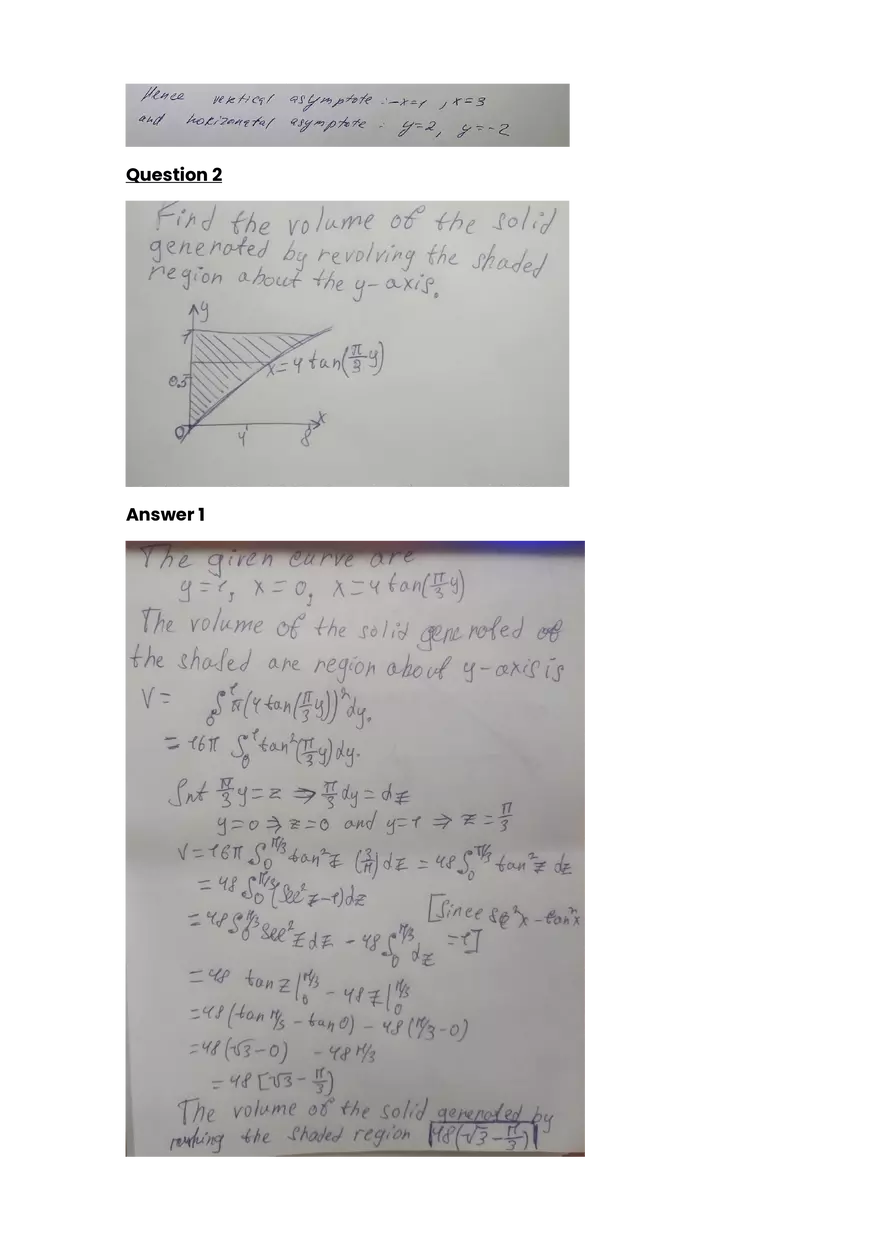 Hence vertical asymptote :- x=1 , x=3
and horizonatal asymptote : y=2, y=-2
Question 2
Find the volume of the solid
generated by revolving the shaded
region about the y-axis.
y
1
x=4 tan(π/3 y)
0.5
x
0 4 8
Answer 1
The given curve are
y=1, x=0, x=4 tan(π/3 y)
The volume of the solid generated of
the shaded are region about y-axis is
V= ∫₀¹ π(4 tan(π/3 y))² dy.
= 16π ∫₀¹ tan²(π/3 y) dy.
π/3 y = z ⇒ π/3 dy = dz
y=0 ⇒ z=0 and y=1 ⇒ z = π/3
V=16π ∫₀^π/3 tan² z (3/π) dz = 48 ∫₀^π/3 tan² z dz
= 48 ∫₀^π/3 (sec² z-1)dz
[Since sec² x - tan² x
= 48 ∫₀^π/3 sec² z dz - 48 ∫₀^π/3 dz =1]
= 48 tan z |₀^π/3 - 48 z |₀^π/3
= 48 (tan π/3 - tan 0) - 48 (π/3 - 0)
= 48 (√3 - 0) - 48 π/3
= 48 [√3 - π/3)
The volume of the solid generated by
the shaded region 48(√3 - π/3)